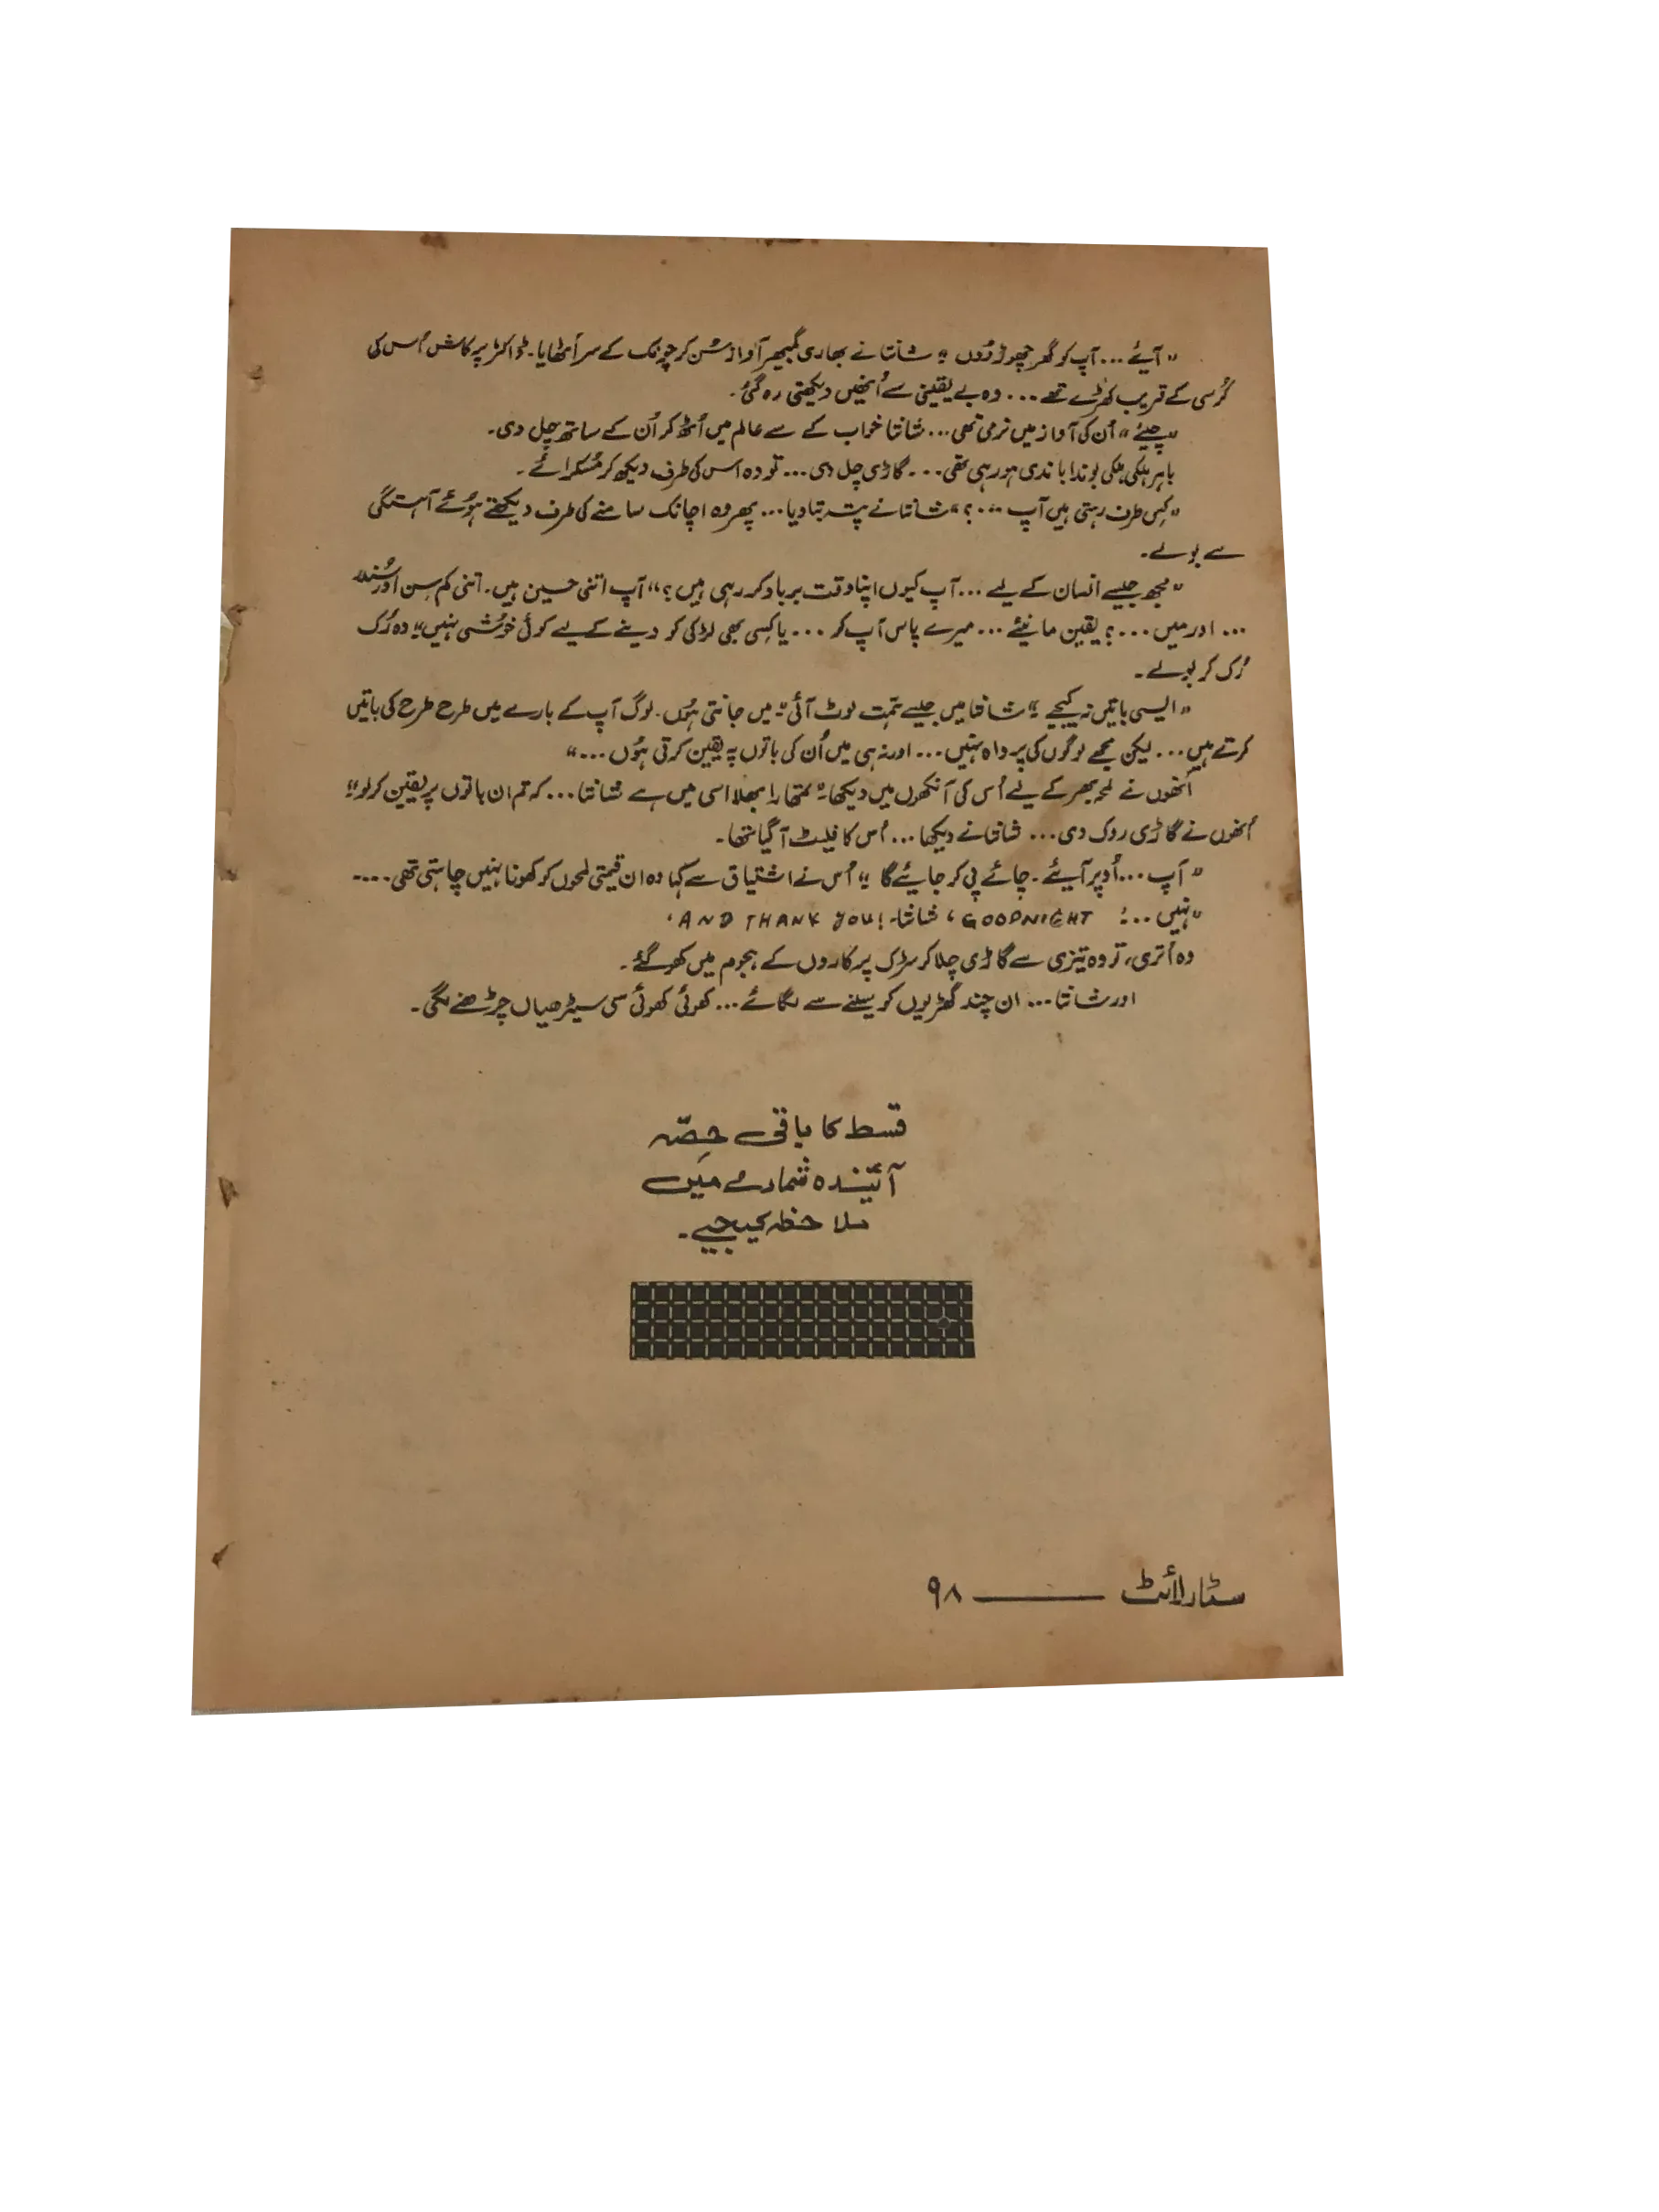 "آیئے... آپ کو گھر چھوڑ دُوں" شانتا نے بھاری گمبھیر آواز سُن کر چونک کے سر اُٹھایا۔ ڈاکٹر پرکاش اُس کی
کُرسی کے قریب کھڑے تھے... وہ بے یقینی سے اُنھیں دیکھتی رہ گئی۔
"چلیئے" اُن کی آواز میں نرمی تھی... شانتا خواب کے سے عالم میں اُٹھ کر اُن کے ساتھ چل دی۔
باہر ہلکی ہلکی بوندا باندی ہو رہی تھی... گاڑی چل دی... تو وہ اس کی طرف دیکھ کر مُسکرائے۔
"کِس طرف رہتی ہیں آپ...؟" شانتا نے پتہ بتا دیا... پھر وہ اچانک سامنے کی طرف دیکھتے ہوُئے آہستگی
سے بولے۔
"مجھ جیسے انسان کے لیے... آپ کیوں اپنا وقت برباد کر رہی ہیں؟" آپ اتنی حسین ہیں۔ اتنی کم سِن اور
... اور میں...؟ یقین مانیئے... میرے پاس آپ کو... یا کسِی بھی لڑکی کو دینے کے لیے کوئی خوُشی نہیں" وہ رُک
رُک کر بولے۔
"ایسی باتیں نہ کیجیے" شانتا میں جیسے ہمّت لوٹ آئی" میں جانتی ہوُں۔ لوگ آپ کے بارے میں طرح طرح کی باتیں
کرتے ہیں... لیکن مجھے لوگوں کی پرواہ نہیں... اور نہ ہی میں اُن کی باتوں پہ یقین کرتی ہوُں..."
اُنھوں نے لمحہ بھر کے لیے اُس کی آنکھوں میں دیکھا۔" تمھارا بھلا اسی میں ہے شانتا... کہ تم ان باتوں پر یقین کر لو"
اُنھوں نے گاڑی روک دی... شانتا نے دیکھا... اُس کا فلیٹ آ گیا تھا۔
"آپ... اُوپر آیئے۔ چائے پی کر جائیے گا" اُس نے اشتیاق سے کہا وہ ان قیمتی لمحوں کو کھونا نہیں چاہتی تھی....
"نہیں...! GOODNIGHT، شانتا۔ AND THANK YOU!'
وہ اُتری، تو وہ تیزی سے گاڑی چلا کر سڑک پر کاروں کے ہجوم میں کھو گئے۔
اور شانتا... ان چند گھڑیوں کو سینے سے لگائے... کھوئی کھوئی سی سیڑھیاں چڑھنے لگی۔
قسط کا باقی حِصّہ
آئیندہ شمارے میں
ملاحظہ کیجیے۔
سٹار لائٹ ——— ۹۸